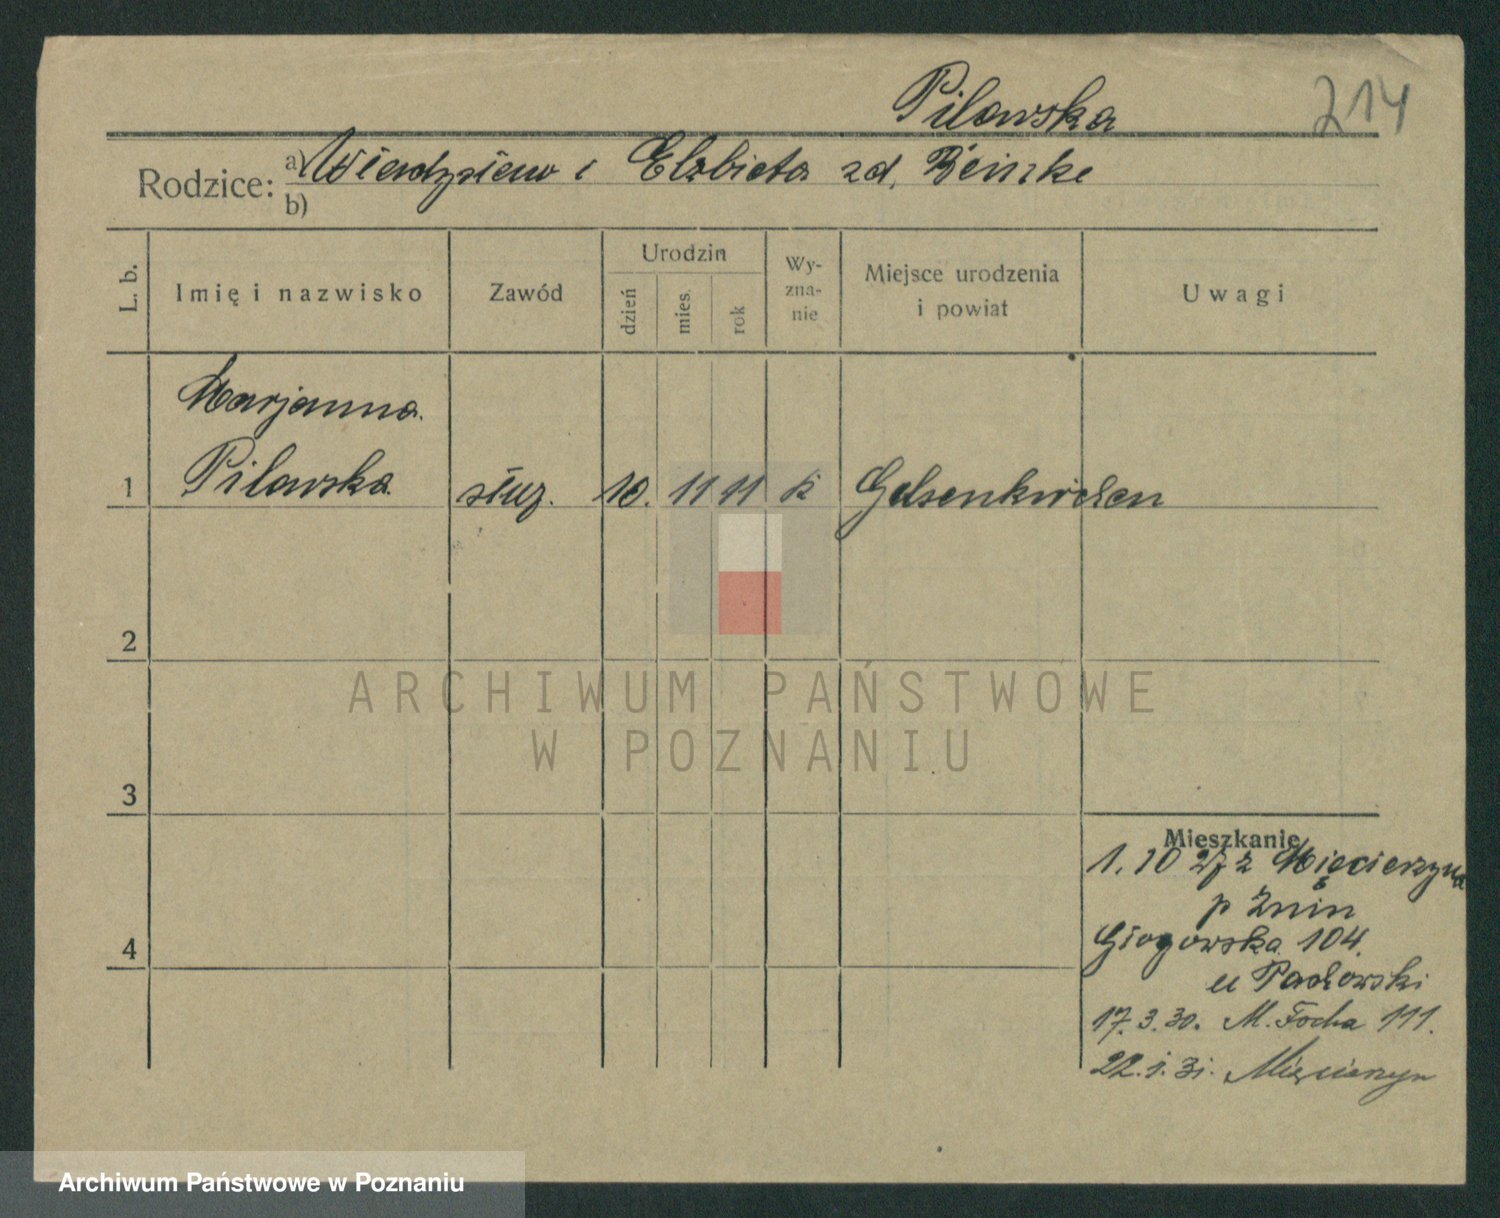 Pilawska
214
Rodzice: a) Wierdzsiew i Elzbieta zd. Reinke
b)
L. b.
Imię i nazwisko
Zawód
Urodzin
dzień
mies.
rok
Wy-
zna-
nie
Miejsce urodzenia
i powiat
Uwagi
Marjanna
1 Pilawska służ. 10. 11 11 k Gelsenkirchen
2
3
4
Mieszkanie
1. 10 27 z Mięcierzyna
p Żnin
Głogowska 104.
u Pachowski
17.3.30. M. Focha 111.
22.1.31. Mięcierzyn
ARCHIWUM PAŃSTWOWE
W POZNANIU
Archiwum Państwowe w Poznaniu